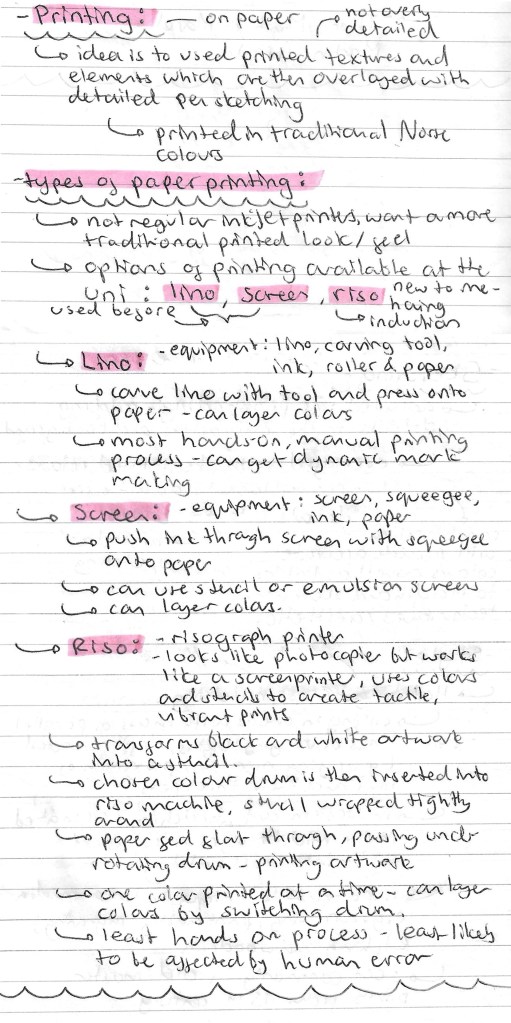 - Printing: - on paper not overly
detailed
idea is to used printed textures and
elements which are then overlayed with
detailed pen sketching
printed in traditional Norse
colours
- types of paper printing:
not regular inkjet printes, want a more
traditional printed look/feel
options of printing available at the
uni: lino, screen, riso new to me -
used before having
induction
Lino: - equipment: lino, carving tool,
ink, roller & paper
carve lino with tool and press onto
paper - can layer colours
most hands-on, manual printing
process - can get dynamic mark
making
Screen: - equipment: screen, squeegee,
ink, paper
push ink through screen with squeegee
onto paper
can use stencil or emulsion screens
can layer colours.
Riso: - risograph printer
- looks like photocopier but works
like a screenprinter, uses colours
and stencils to create tactile,
vibrant prints
transforms black and white artwork
into a stencil.
chosen colour drum is then inserted into
riso machine, stencil wrapped tightly
around
paper fed flat through, passing under
rotating drum - printing artwork
one colour printed at a time - can layer
colours by switching drum.
least hands on process - least likely
to be affected by human error